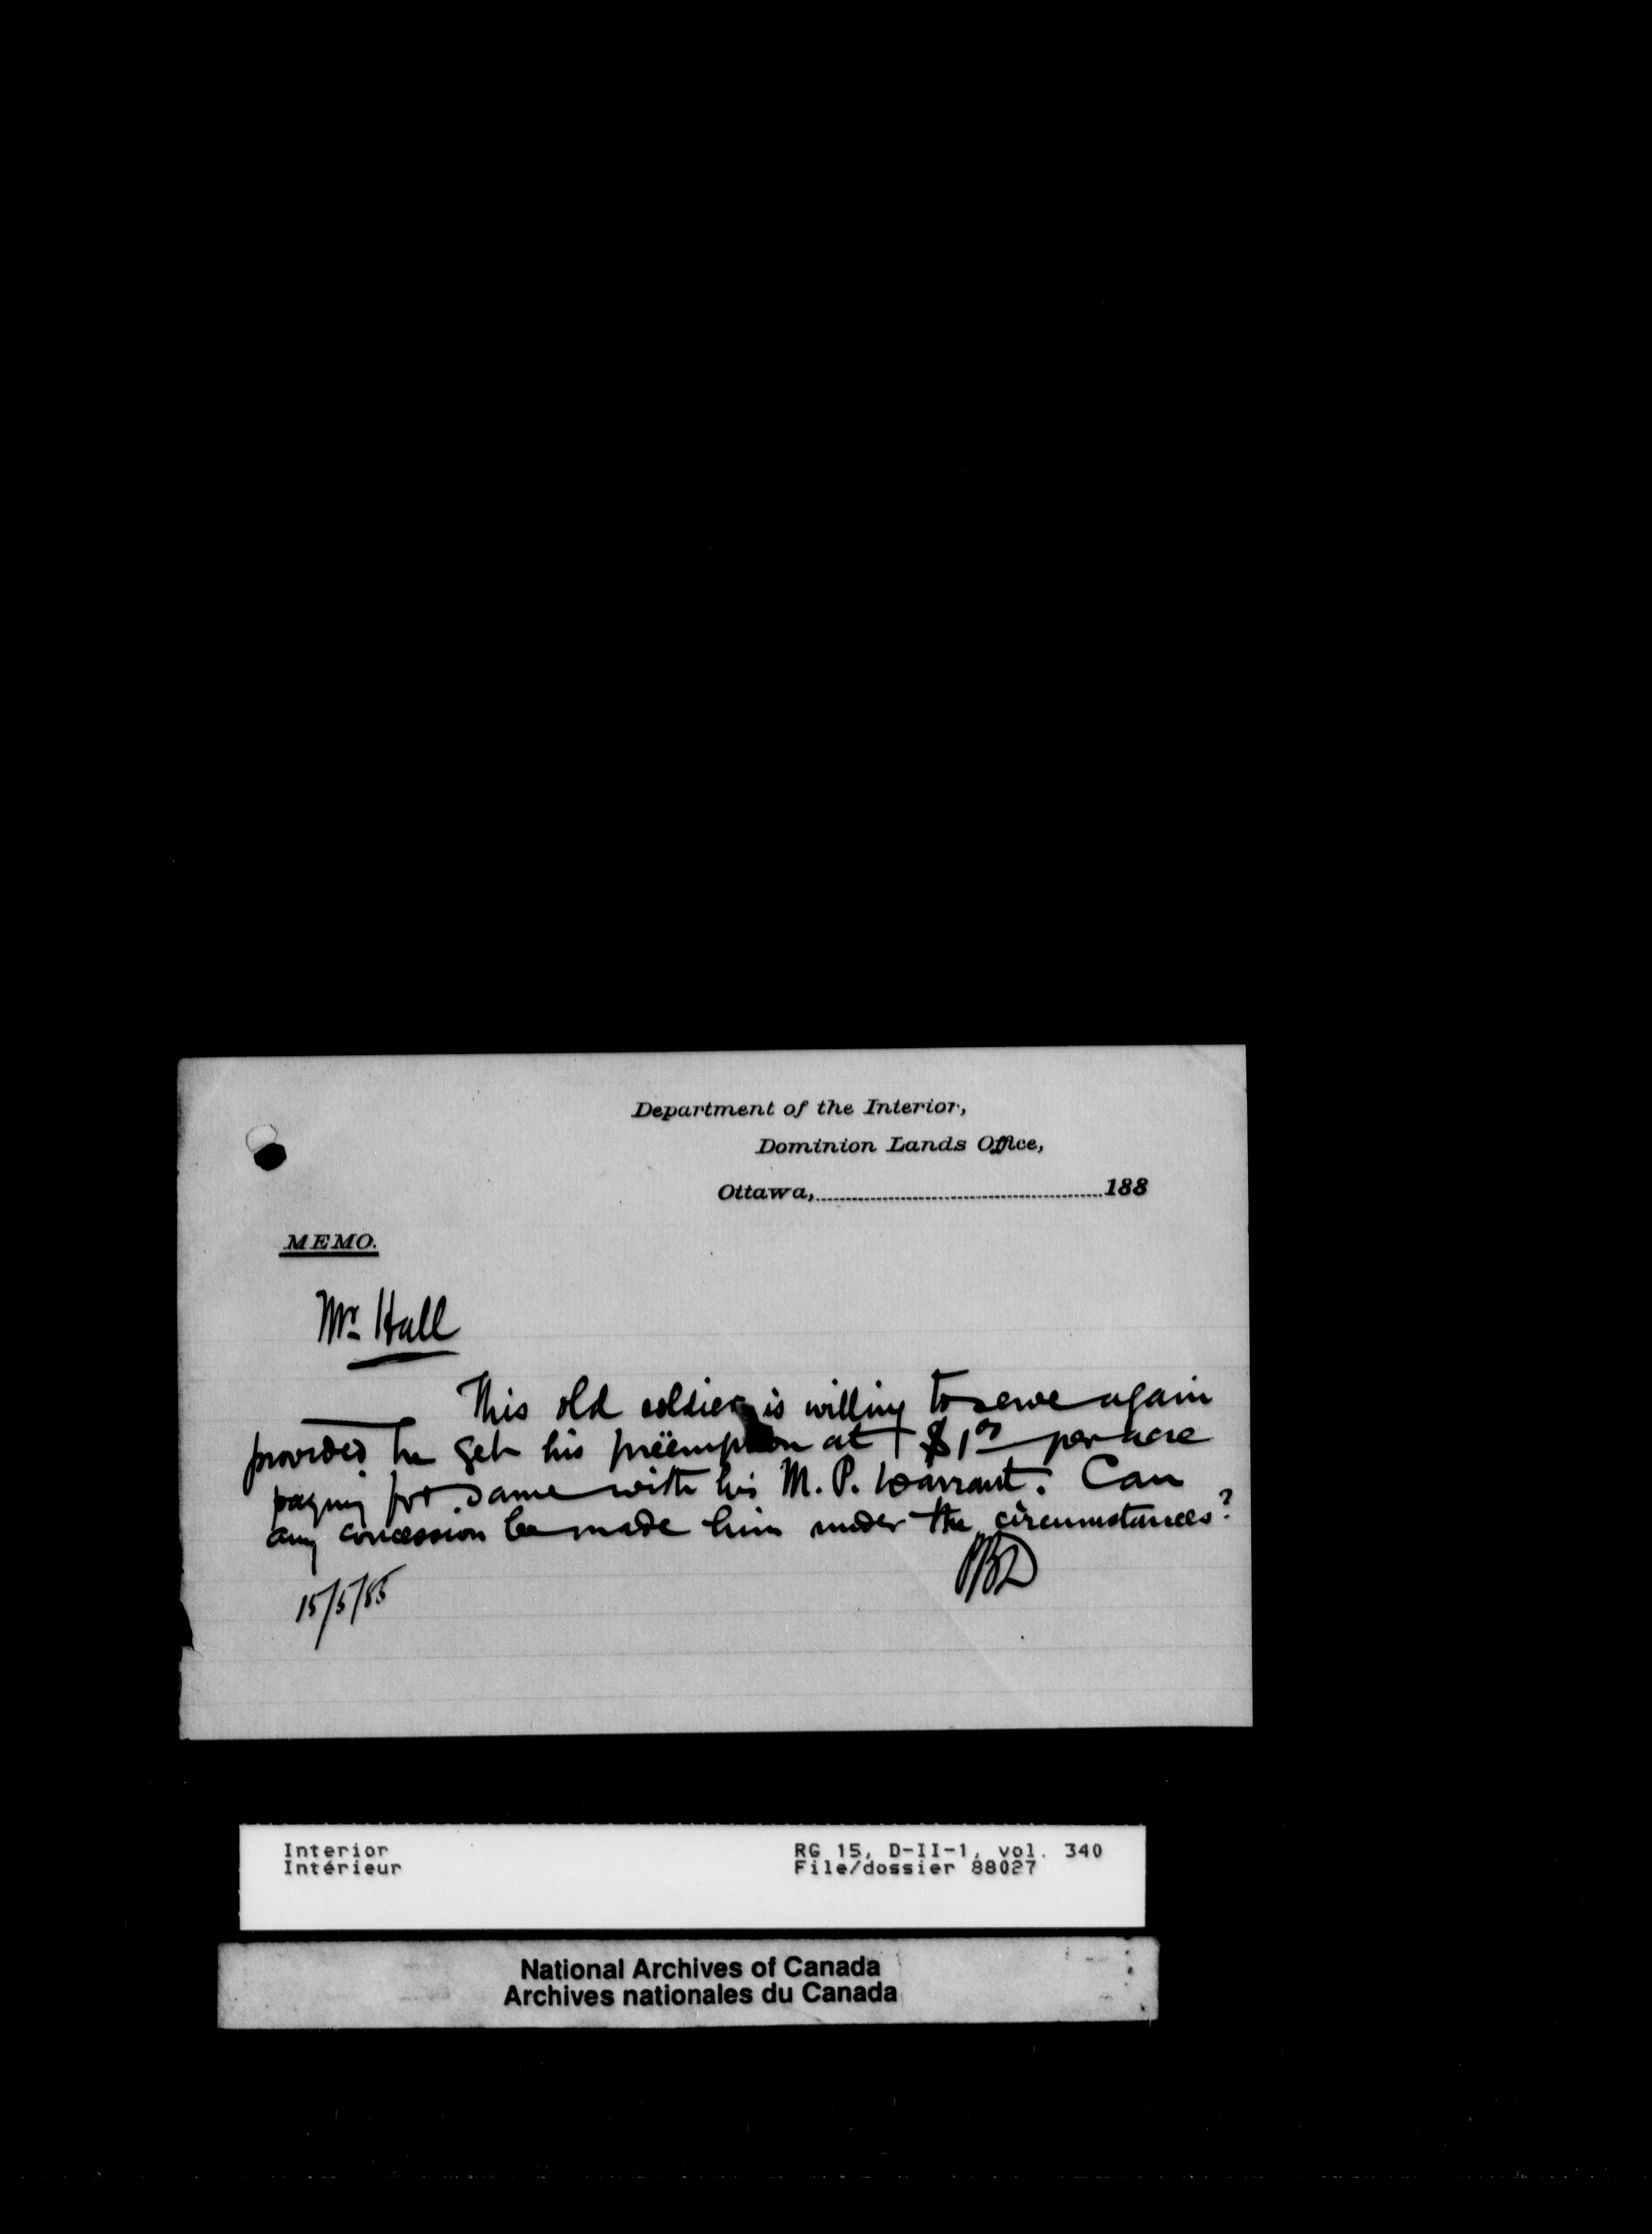 Department of the Interior,
Dominion Lands Office,
Ottawa, 188
MEMO.
Mr. Hall
This old soldier is willing to serve again
provided he gets his preëmption at $1.00 per acre
paying for same with his M. P. Warrant. Can
any concession be made him under the circumstances?
15/5/85
Interior RG 15, D-II-1, vol. 340
Intérieur File/dossier 88027
National Archives of Canada
Archives nationales du Canada